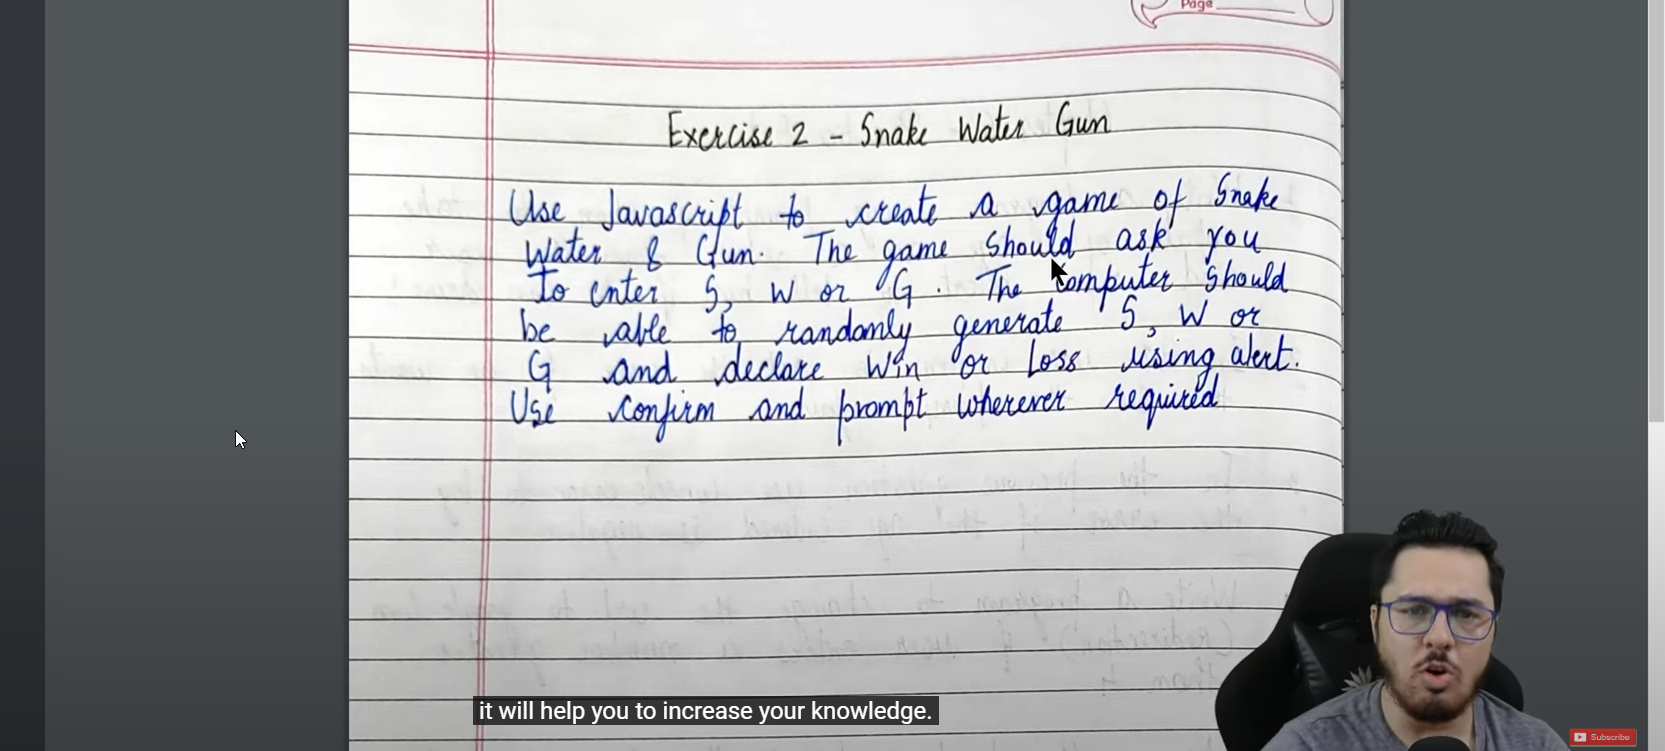 Page
Exercise 2 - Snake Water Gun
Use Javascript to create a game of Snake
Water & Gun. The game should ask you
to enter S, W or G. The computer should
be able to randomly generate S, W or
G and declare Win or Loss using alert.
Use confirm and prompt wherever required
it will help you to increase your knowledge.
Subscribe